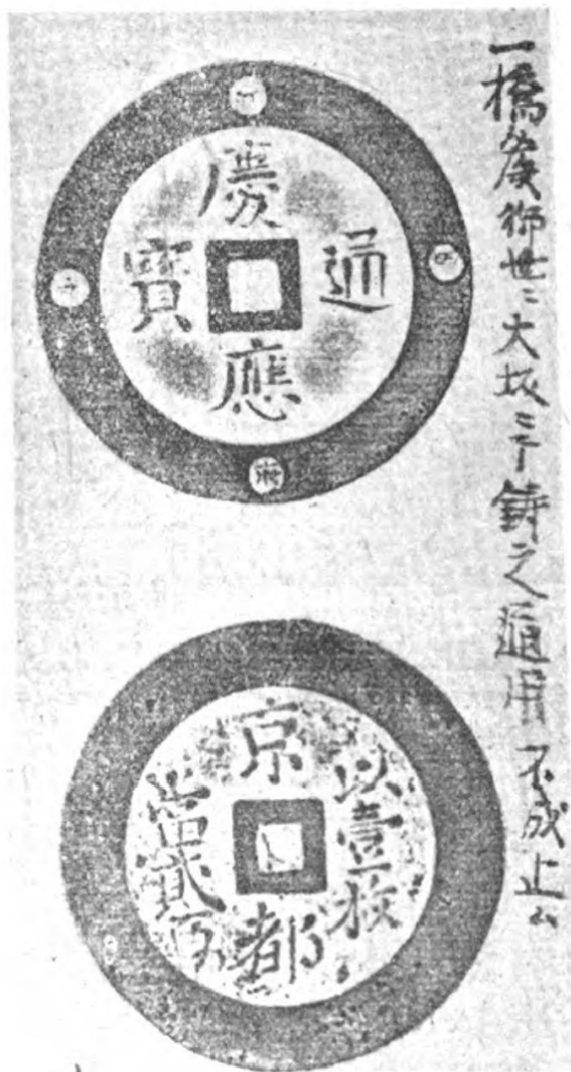 一橋慶御世ニ大坂ニテ鋳之通用不成止ム
慶應通寶
京都
以壹枚
當貳百